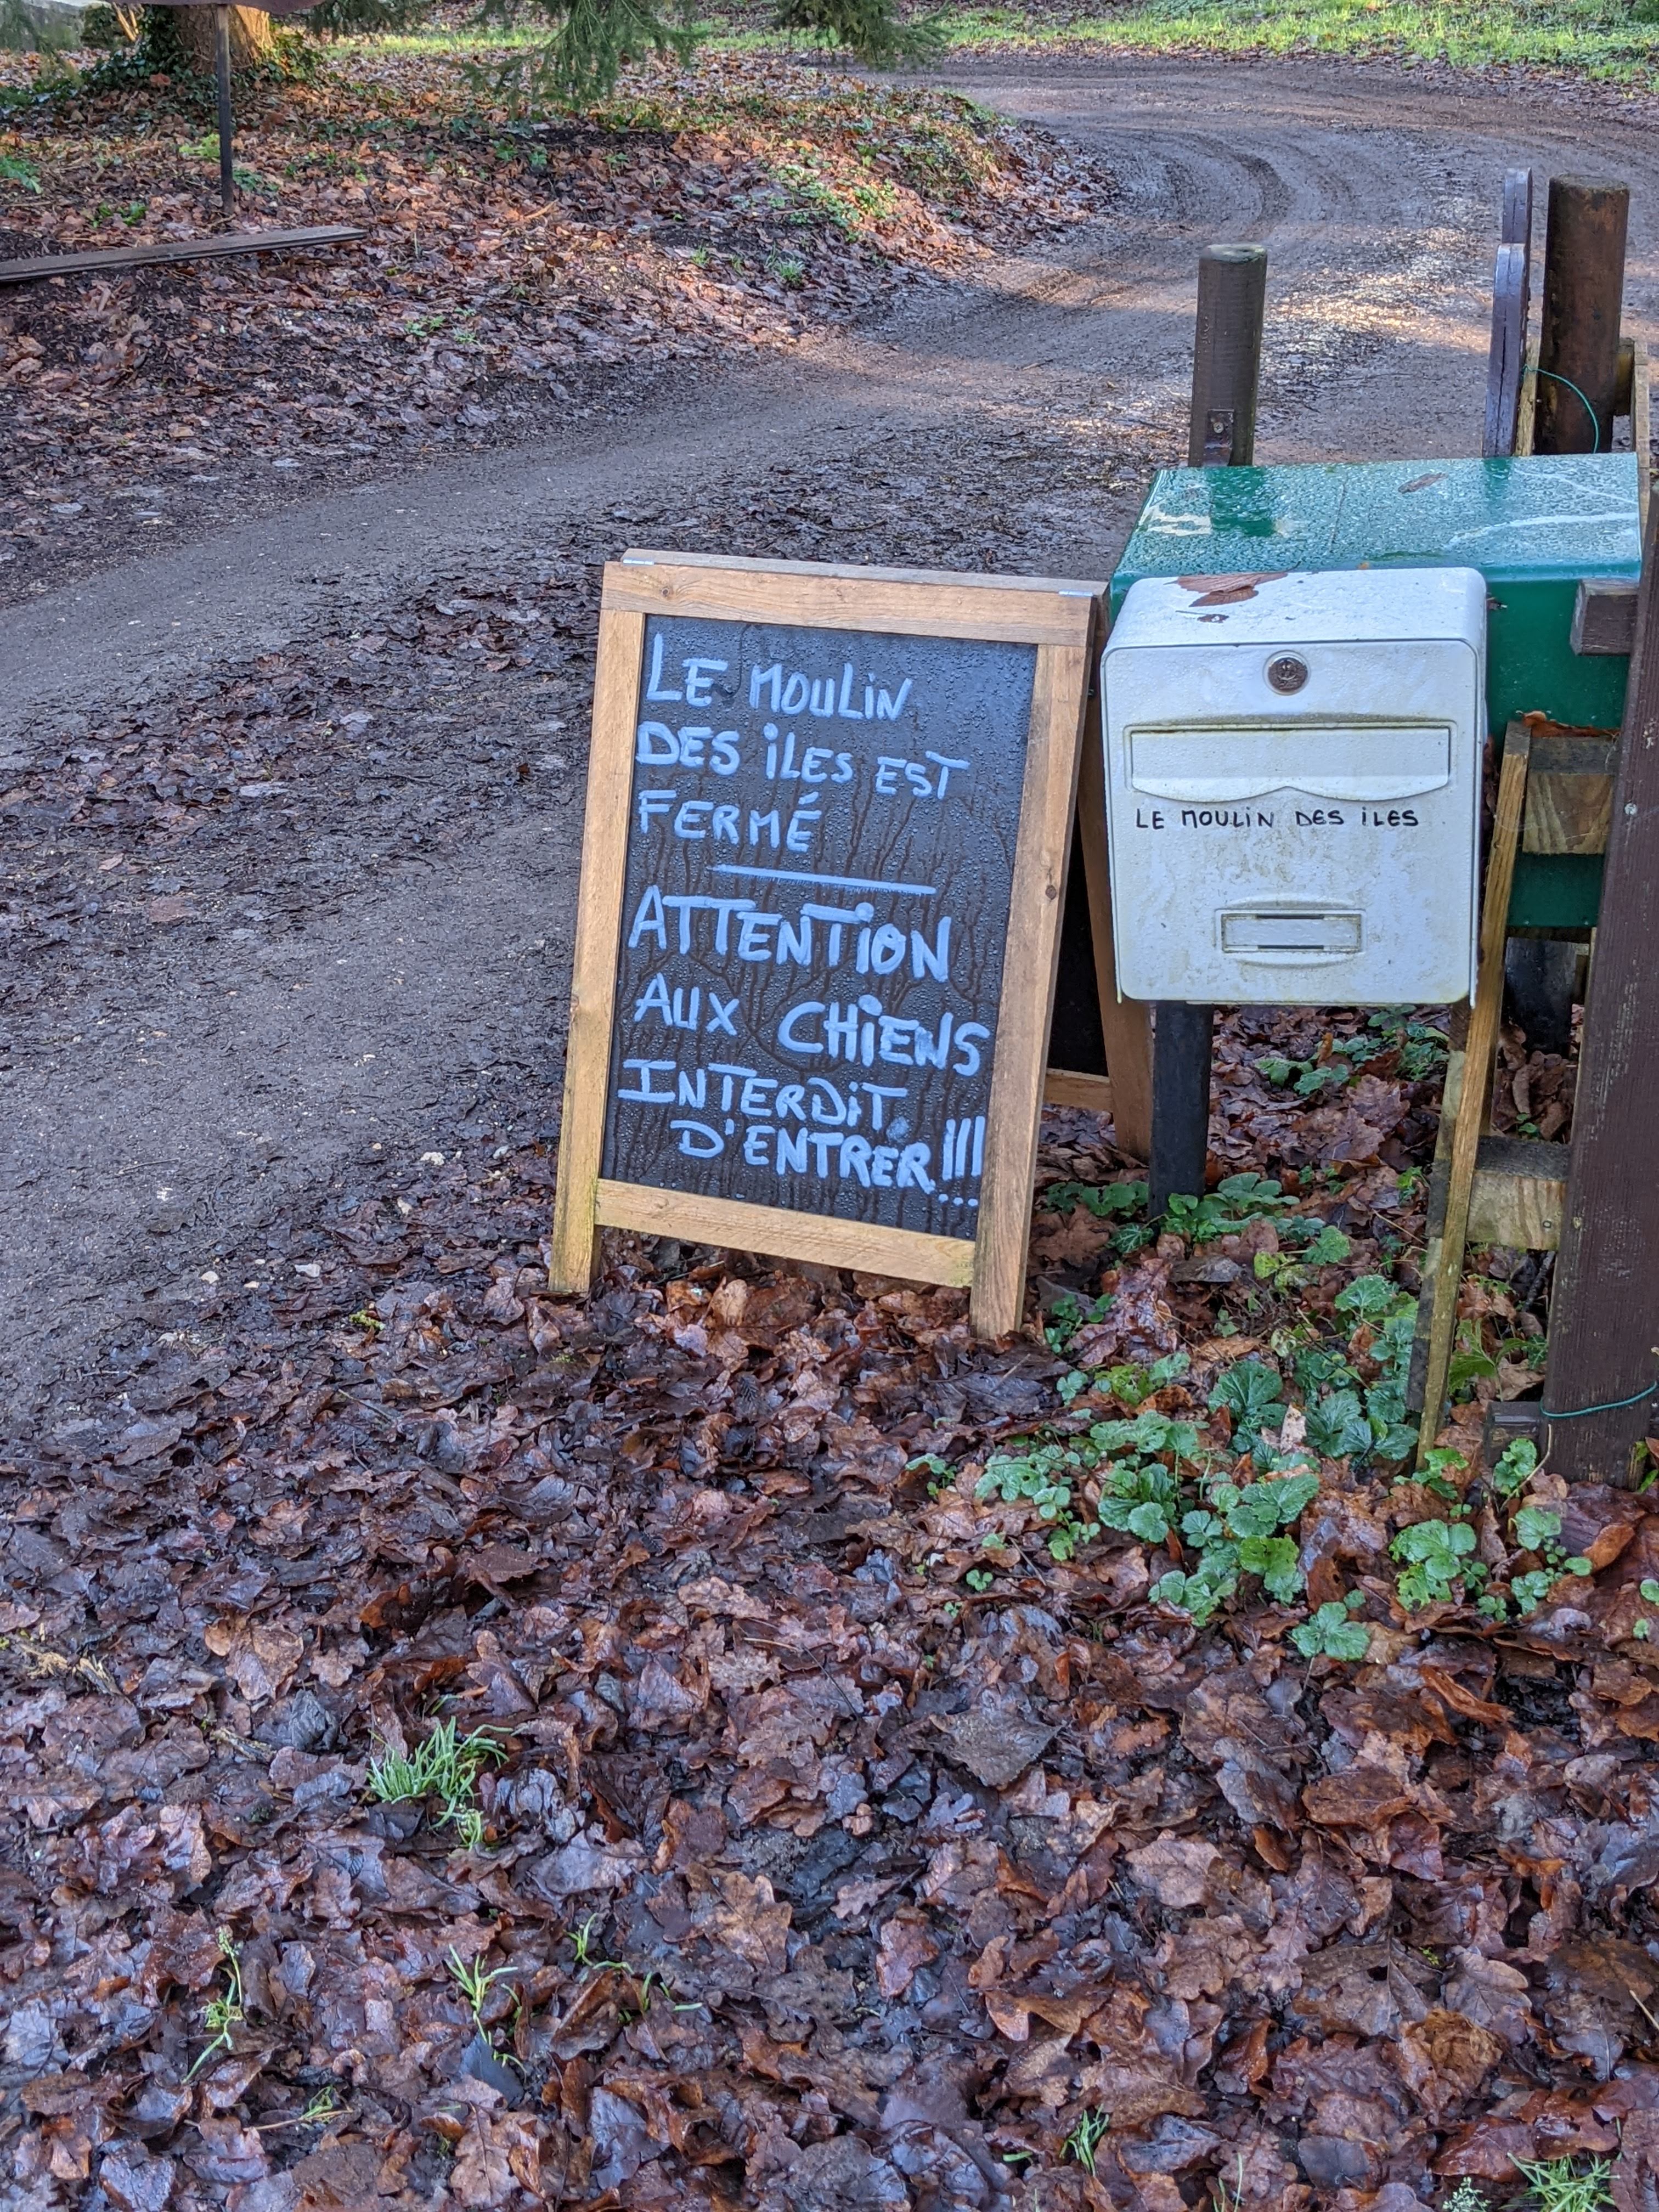 LE MOULiN
DES iLES EST
FERMÉ
ATTENTiON
AUX CHiENS
INTERDiT
D'ENTRER!!!
LE MOULiN DES iLES